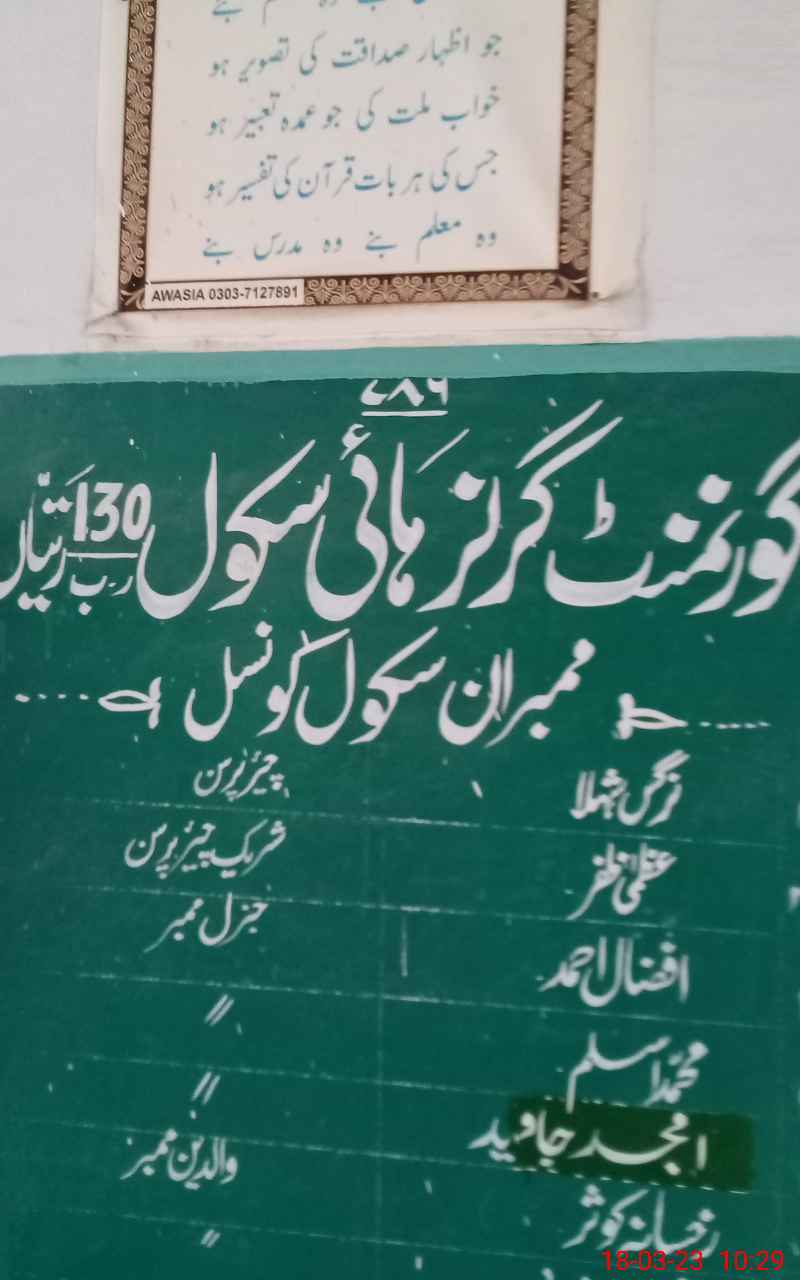 جو اظہار صداقت کی تصویر ہو
خواب ملت کی جو عمدہ تعبیر ہو
جس کی ہر بات قرآن کی تفسیر ہو
وہ معلم بنے وہ مدرس بنے
AWASIA 0303-7127891
۷۸۶
گورنمنٹ گرلز ہائی سکول 130 ر۔ب رتیاں
ممبران سکول کونسل
نرگس شہلا چیئرپرسن
عظمیٰ ظفر شریک چیئرپرسن
افضال احمد جنرل ممبر
محمد اسلم 〃
امجد جاوید 〃
رخسانہ کوثر والدین ممبر
〃
18-03-23 10:29